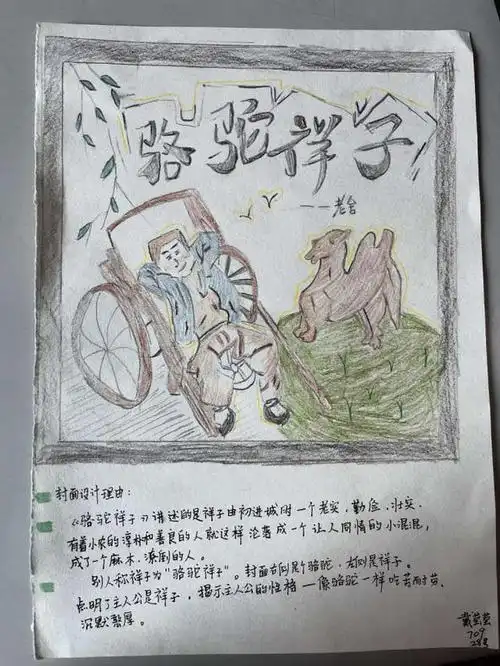 骆驼祥子
——老舍
封面设计理由：
《骆驼祥子》讲述的是祥子由初进城时一个老实、勤俭、壮实、
有着小农的淳朴和善良的人就这样沦落成一个让人同情的小混混，
成了一个麻木、潦倒的人。
别人称祥子为“骆驼祥子”。封面右侧是个骆驼，左侧是祥子。
点明了主人公是祥子，揭示主人公的性格——像骆驼一样吃苦耐劳、
沉默憨厚。
709
28号